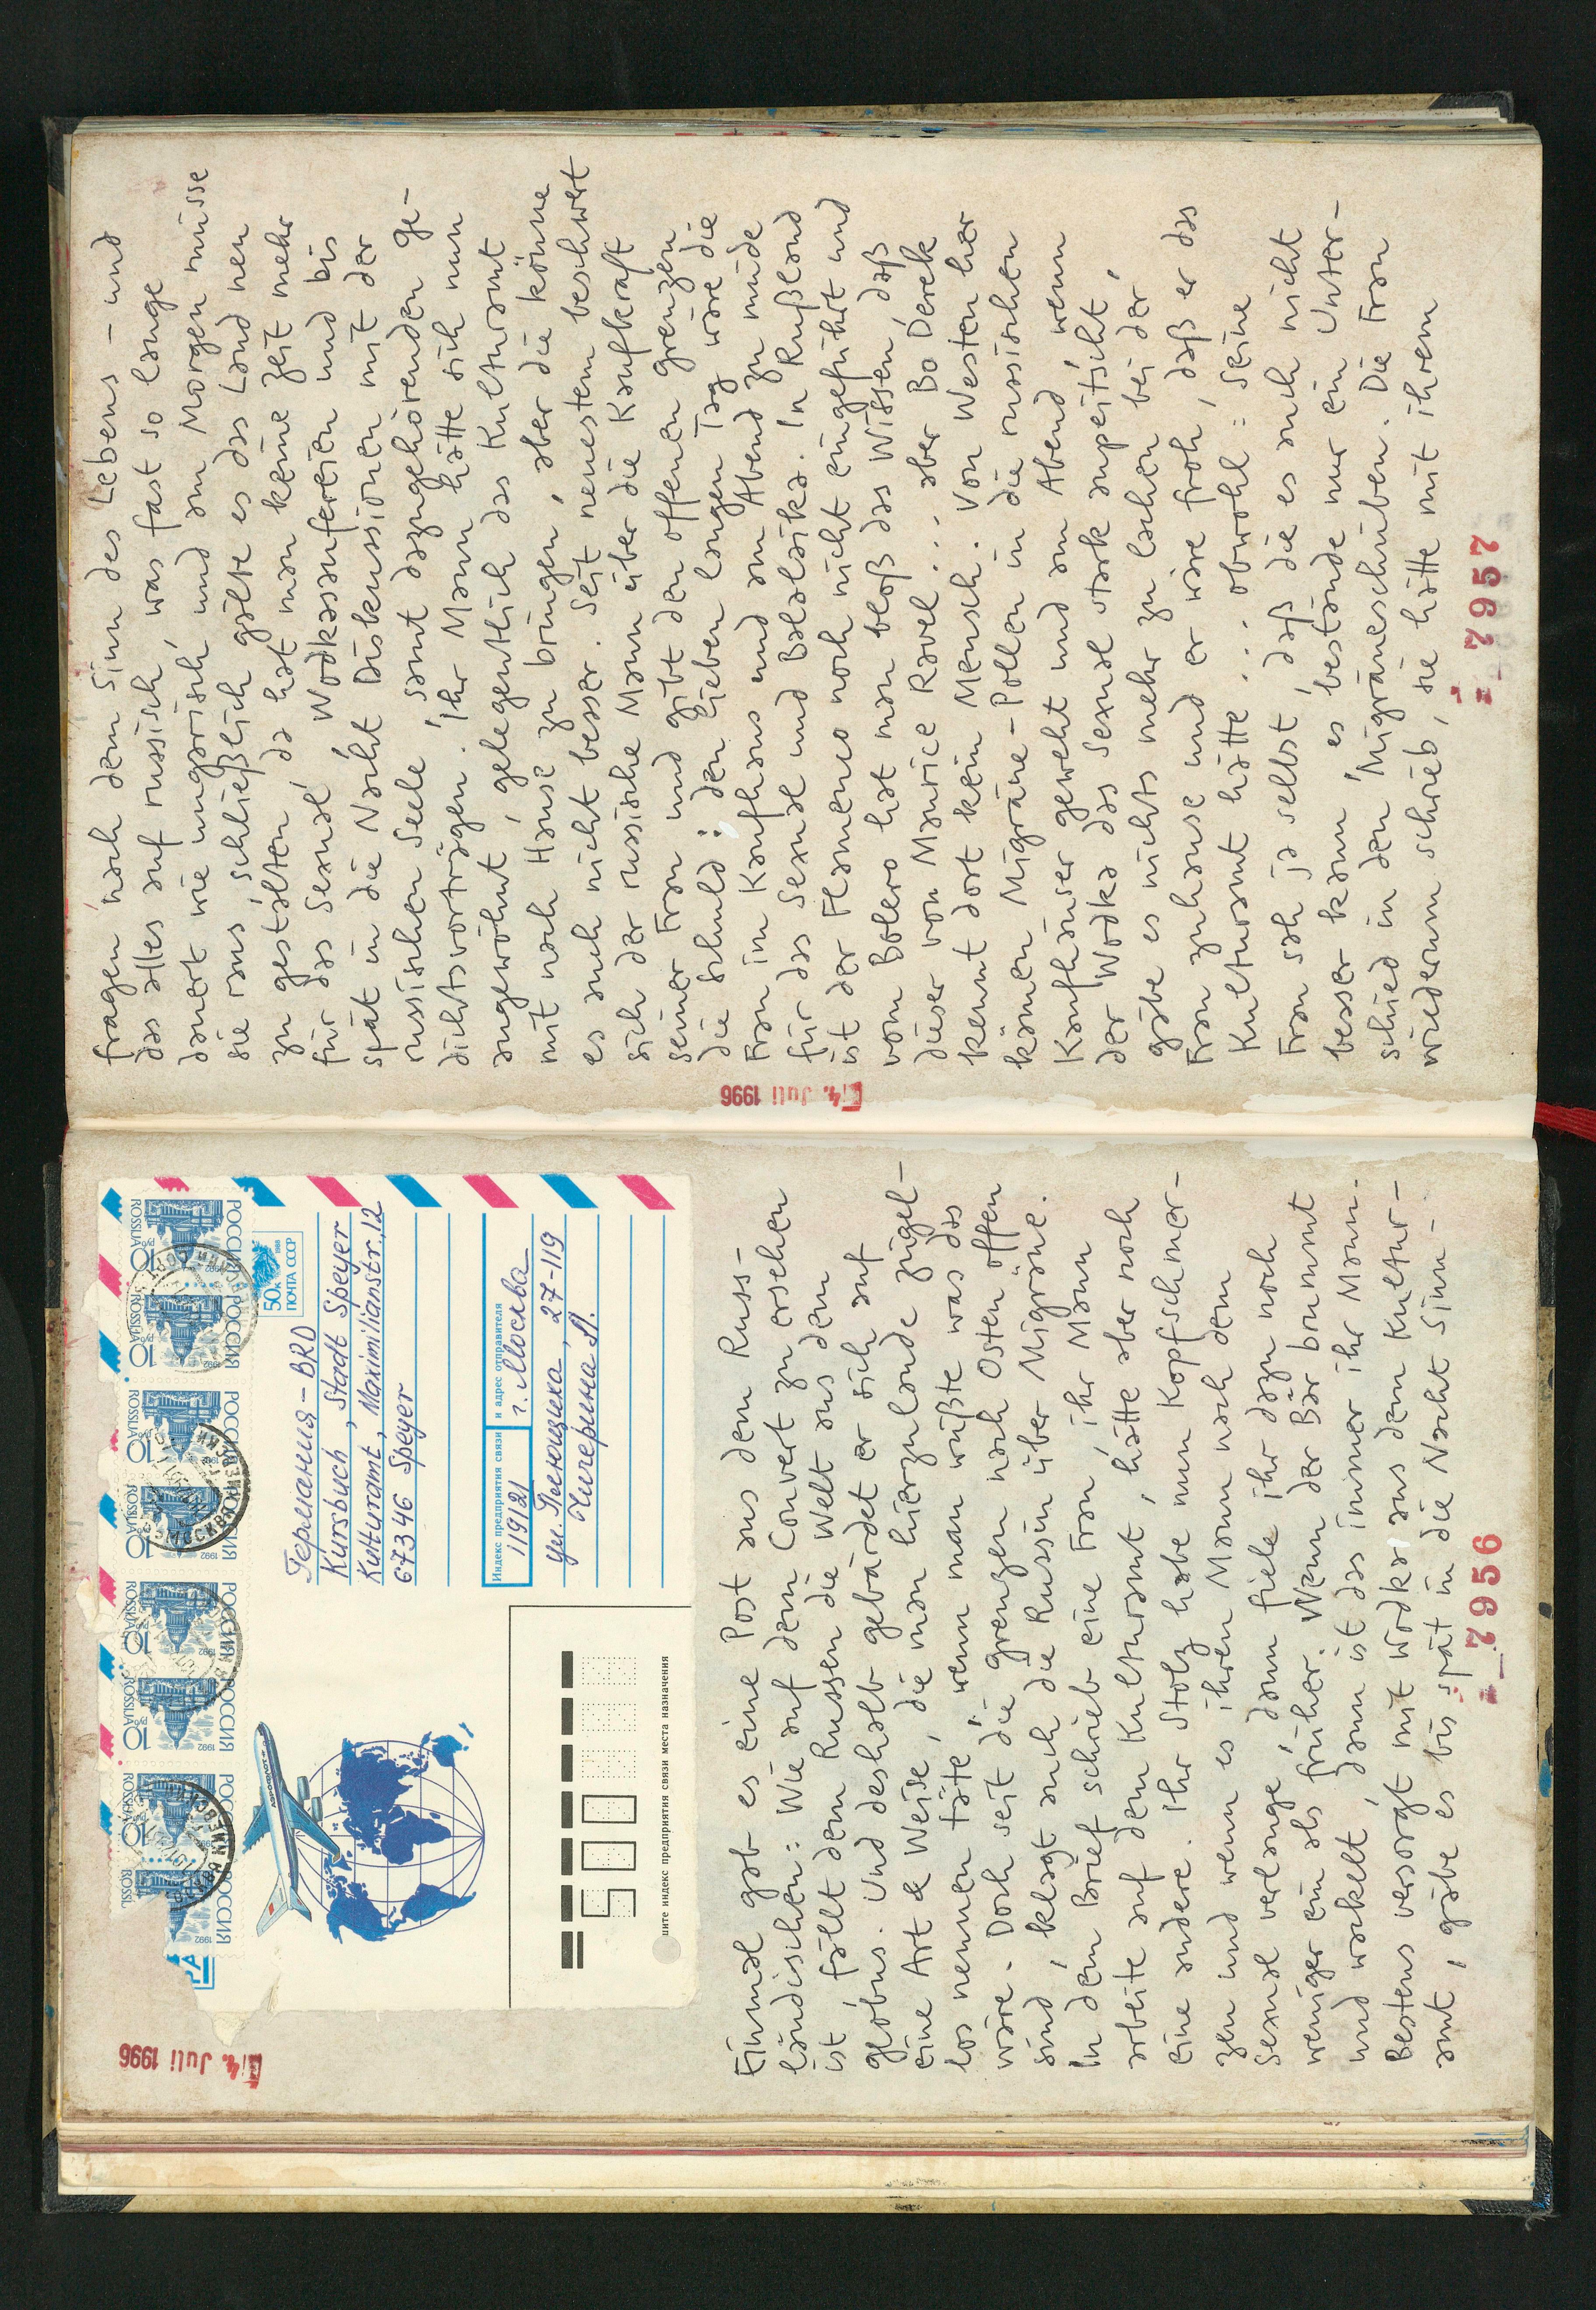 E 4. Juli 1996
РОССИЯ ROSSIJA 10 руб 1992
РОССИЯ ROSSIJA 10 руб 1992
РОССИЯ ROSSIJA 10 руб 1992
РОССИЯ ROSSIJA 10 руб 1992
РОССИЯ ROSSIJA 10 руб 1992
РОССИЯ ROSSIJA 10 руб 1992
РОССИЯ ROSSIJA 10 руб 1992
РОССИЯ ROSSIJA 10 руб 1992
АЭРОФЛОТ
50к 1988
ПОЧТА СССР
Германия – BRD
Kursbuch, Stadt Speyer
Kulturamt, Maximilianstr. 12
67346 Speyer
Индекс предприятия связи и адрес отправителя
119121 г. Москва
ул. Плющиха, 27-119
Чичерина Л.
шите индекс предприятия связи места назначения
Einmal gab es eine Post aus dem Russ-
ländischen: Wie auf dem Convert zu ersehen
ist fällt dem Russen die Welt aus dem
Globus. Und deshalb gebärdet er sich auf
eine Art & Weise, die man hierzulande zügel-
los nennen täte, wenn man wüßte was das
wäre. Doch seit die Grenzen nach Osten offen
sind, klagt auch die Russin über Migräne.
In dem Brief schrieb eine Frau, ihr Mann
arbeite auf dem Kulturamt, hätte aber noch
eine andere. Ihr Stolz habe nun Kopfschmer-
zen und wenn es ihren Mann nach dem
Sexual verlange, dann fiele ihr dazu noch
weniger ein als früher. Wenn der Bär brummt
und wackelt, dann ist das immer ihr Mann.
Bestens versorgt mit Wodka aus dem Kultur-
amt, gäbe es bis spät in die Nacht Sinn-
2956
fragen nach dem Sinn des Lebens – und
das alles auf russisch, was fast so lange
dauert wie ungarisch, und am Morgen müsse
sie raus, schließlich gälte es das Land neu
zu gestalten, da hat man keine Zeit mehr
für das Sexual, Wodkasaufereien und bis
spät in die Nacht Diskussionen mit der
russischen Seele, samt dazugehörenden Ge-
dichtsvorträgen. Ihr Mann hätte sich nun
angewöhnt, gelegentlich das Kulturamt
mit nach Hause zu bringen, aber die könne
es auch nicht besser. Seit neuestem beschwert
sich der russische Mann über die Kaufkraft
seiner Frau und gibt den offenen Grenzen
die Schuld: den lieben langen Tag wäre die
Frau im Kaufhaus und am Abend zu müde
für das Sexual und Balalaika. In Rußland
ist der Flamenco noch nicht eingeführt und
vom Bolero hat man bloß das Wissen, daß
dieser von Maurice Ravel... aber Bo Derek
kennt dort kein Mensch. Von Westen her
kämen Migräne-Pollen in die russischen
Kaufhäuser geweht und am Abend, wenn
der Wodka das Sexual stark anpeitscht,
gäbe es nichts mehr zu lachen bei der
Frau zuhause und er wäre froh, daß er das
Kulturamt hätte... obwohl: Seine
Frau sah ja selbst, daß die es auch nicht
besser kann, es bestände nur ein Unter-
schied in den Migräneschüben. Die Frau
wiederum schrieb, sie hätte mit ihrem
E 4. Juli 1996
2957